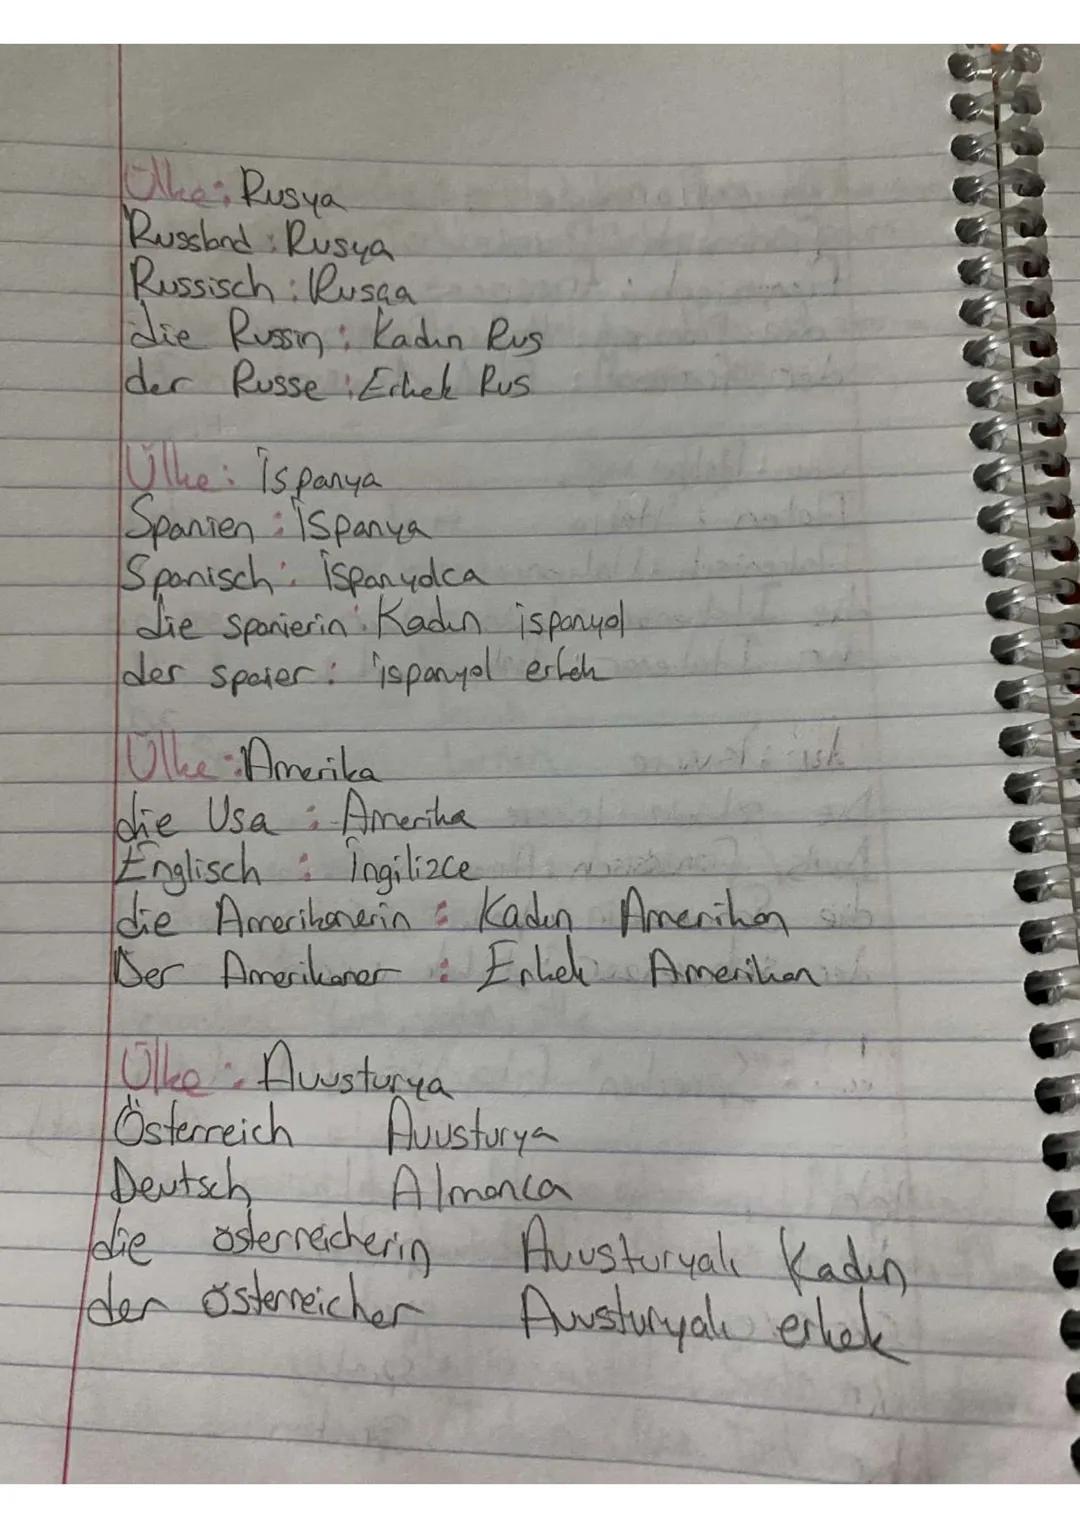 Ülke: Rusya
Russland: Rusya
Russisch: Rusça
die Russin: Kadın Rus
der Russe: Erkek Rus
Ülke: İspanya
Spanien: İspanya
Spanisch: İspanyolca
die spanierin: Kadın ispanyol
der spaier: ispanyol erkek
Ülke: Amerika
die Usa: Amerika
Englisch: İngilizce
die Amerikanerin: Kadın Amerikan
Der Amerikaner: Erkek Amerikan
Ülke: Avusturya
Österreich Avusturya
Deutsch Almanca
die österreicherin Avusturyalı Kadın
der österreicher Avusturyalı erkek